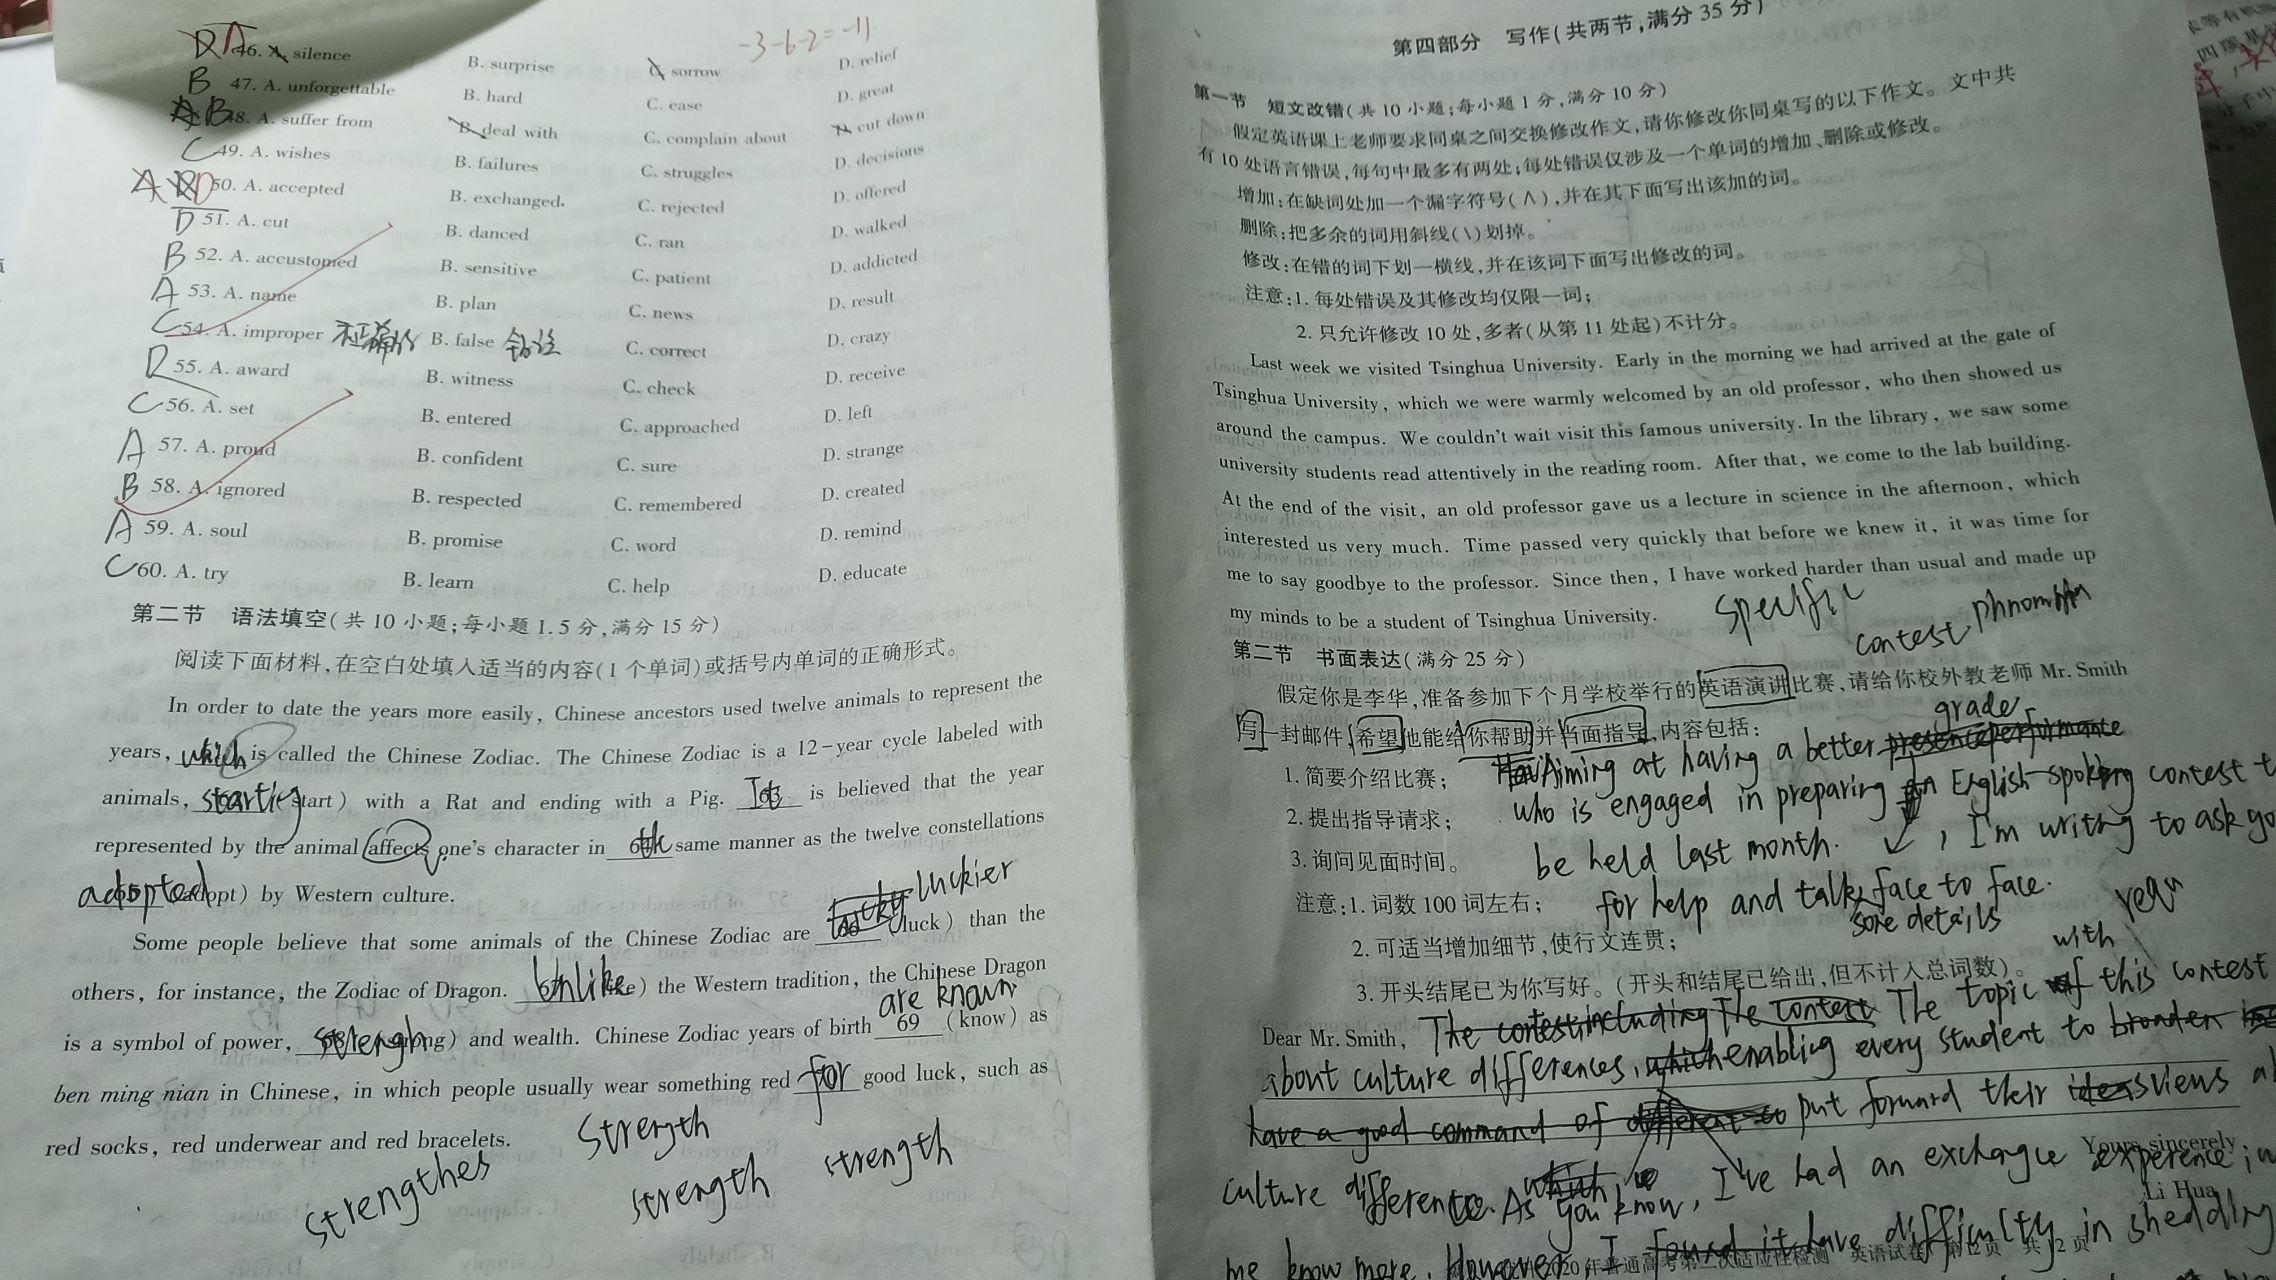 -3-6-2=-11
D A 46. A. silence B. surprise C. sorrow D. relief
B 47. A. unforgettable B. hard C. ease D. great
A B 48. A. suffer from B. deal with C. complain about D. cut down
C 49. A. wishes B. failures C. struggles D. decisions
A B D 50. A. accepted B. exchanged. C. rejected D. offered
D 51. A. cut B. danced C. ran D. walked
B 52. A. accustomed B. sensitive C. patient D. addicted
A 53. A. name B. plan C. news D. result
C 54. A. improper 不正确的 B. false 错误 C. correct D. crazy
D 55. A. award B. witness C. check D. receive
C 56. A. set B. entered C. approached D. left
A 57. A. proud B. confident C. sure D. strange
B 58. A. ignored B. respected C. remembered D. created
A 59. A. soul B. promise C. word D. remind
C 60. A. try B. learn C. help D. educate
第二节 语法填空(共 10 小题;每小题 1.5 分,满分 15 分)
阅读下面材料,在空白处填入适当的内容(1 个单词)或括号内单词的正确形式。
In order to date the years more easily, Chinese ancestors used twelve animals to represent the
years, which is called the Chinese Zodiac. The Chinese Zodiac is a 12-year cycle labeled with
animals, starting (start) with a Rat and ending with a Pig. It 63 is believed that the year
represented by the animal affects one's character in 64 the same manner as the twelve constellations
adopted (adopt) by Western culture.
lucky luckier
Some people believe that some animals of the Chinese Zodiac are 66 (luck) than the
others, for instance, the Zodiac of Dragon. Unlike (like) the Western tradition, the Chinese Dragon
are known
is a symbol of power, strengh (strong) and wealth. Chinese Zodiac years of birth 69 (know) as
ben ming nian in Chinese, in which people usually wear something red for 70 good luck, such as
red socks, red underwear and red bracelets.
strength
strengthes strength strength
第四部分 写作(共两节,满分 35 分)
第一节 短文改错(共 10 小题;每小题 1 分,满分 10 分)
假定英语课上老师要求同桌之间交换修改作文,请你修改你同桌写的以下作文。文中共
有 10 处语言错误,每句中最多有两处;每处错误仅涉及一个单词的增加、删除或修改。
增加:在缺词处加一个漏字符号(∧),并在其下面写出该加的词。
删除:把多余的词用斜线(\)划掉。
修改:在错的词下划一横线,并在该词下面写出修改的词。
注意:1. 每处错误及其修改均仅限一词;
2. 只允许修改 10 处,多者(从第 11 处起)不计分。
Last week we visited Tsinghua University. Early in the morning we had arrived at the gate of
Tsinghua University, which we were warmly welcomed by an old professor, who then showed us
around the campus. We couldn't wait visit this famous university. In the library, we saw some
university students read attentively in the reading room. After that, we come to the lab building.
At the end of the visit, an old professor gave us a lecture in science in the afternoon, which
interested us very much. Time passed very quickly that before we knew it, it was time for
me to say goodbye to the professor. Since then, I have worked harder than usual and made up
my minds to be a student of Tsinghua University.
specific
contest
第二节 书面表达(满分 25 分)
假定你是李华,准备参加下个月学校举行的英语演讲比赛,请给你校外教老师 Mr. Smith
写一封邮件,希望他能给你帮助并当面指导,内容包括:
grade
1. 简要介绍比赛; Aiming at having a better presence performance
2. 提出指导请求; who is engaged in preparing an English-spoking contest
3. 询问见面时间。 be held last month. , I'm writing to ask
注意:1. 词数 100 词左右; for help and talk face to face.
some details
2. 可适当增加细节,使行文连贯; with
3. 开头结尾已为你写好。(开头和结尾已给出,但不计入总词数)。
Dear Mr. Smith, The contest including The contest The topic of this contest
about culture differences, which enabling every student to broaden
have a good command of different put forward their ideas views
Yours sincerely
culture difference. As you know, I've had an exchange experience
Li Hua
me know more. However, I found it have difficulty in shedding
2020 年普通高考第二次适应性检测 英语试卷 第12页 共 12 页